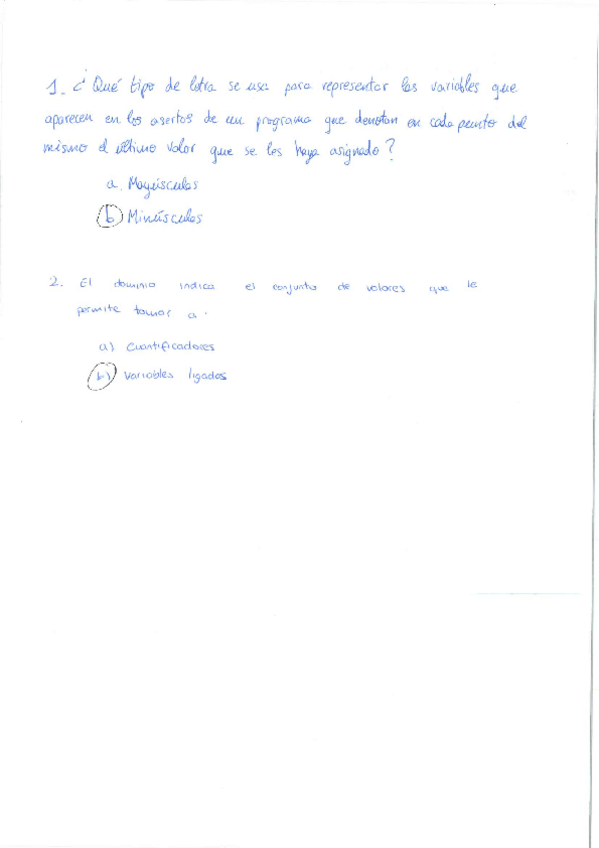 1- ¿Qué tipo de letra se usa para representar las variables que
aparecen en los asertos de un programa que denotan en cada punto del
mismo el último valor que se les haya asignado?
a. Mayúsculas
b) Minúsculas
2. El dominio indica el conjunto de valores que le
permite tomar a.
a) Cuantificadores
b) Variables ligadas